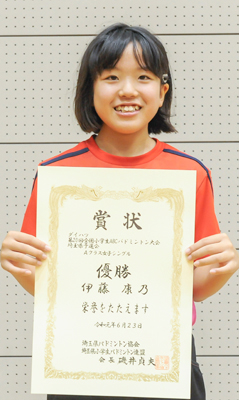 賞状
ダイハツ
第20回全国小学生ABCバドミントン大会
埼玉県予選会
Aクラス女子シングルス
優勝
伊藤 康乃
栄誉をたたえます
令和元年6月23日
埼玉県バドミントン協会
埼玉県小学生バドミントン連盟
会長 磯井貞夫